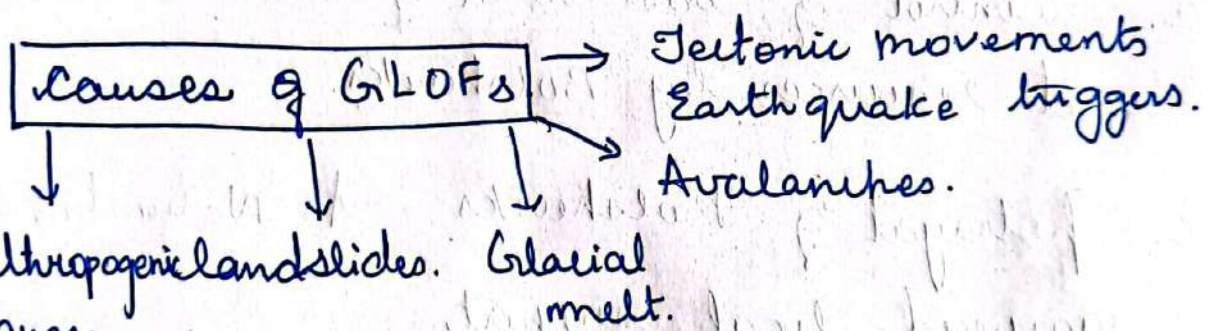 Causes of GLOFs
Tectonic movements
Earthquake triggers.
Avalanches.
thropogenic landslides. Glacial
melt.